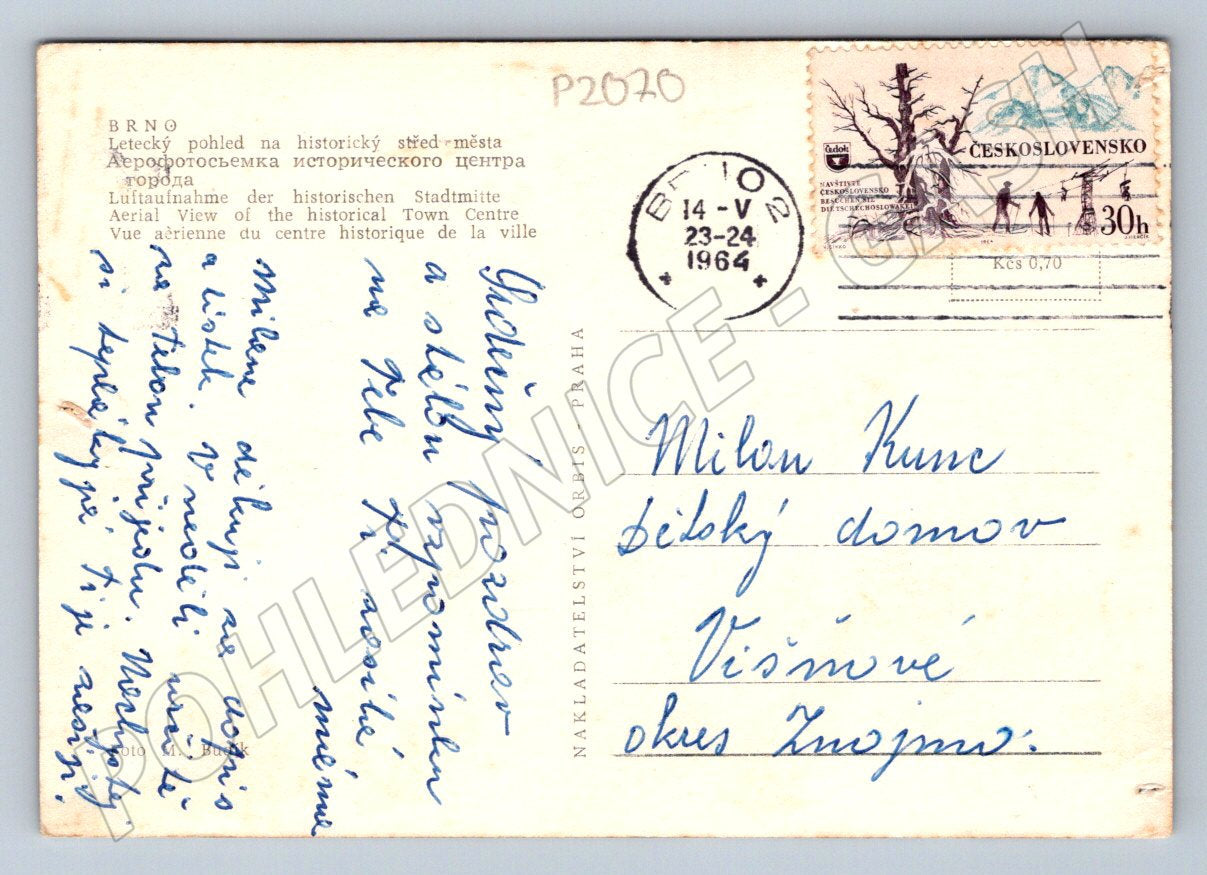 P2070
BRNO
Letecký pohled na historický střed města
Аерофотосъемка исторического центра
города
Luftaufnahme der historischen Stadtmitte
Aerial View of the historical Town Centre
Vue aèrienne du centre historique de la ville
BRNO 2
14 -V
23-24
1964
čedok
NAVŠTIVTE
ČESKOSLOVENSKO
BESUCHEN SIE
DIE TSCHECHOSLOWAKEI
ČESKOSLOVENSKO
30h
Kčs 0,70
Srdečný pozdrav
a stálou vzpomínku
na Tebe
mémé
Milane děkuji za dopis
a lístek. V neděli určitě
za Tebou přijedu. Nechytej
si tepláky já Ti je
Foto M. Budík
NAKLADATELSTVÍ ORBIS - PRAHA
Milan Kunc
Dětský domov
Višňové
okres Znojmo.
POHLEDNICE - CASH